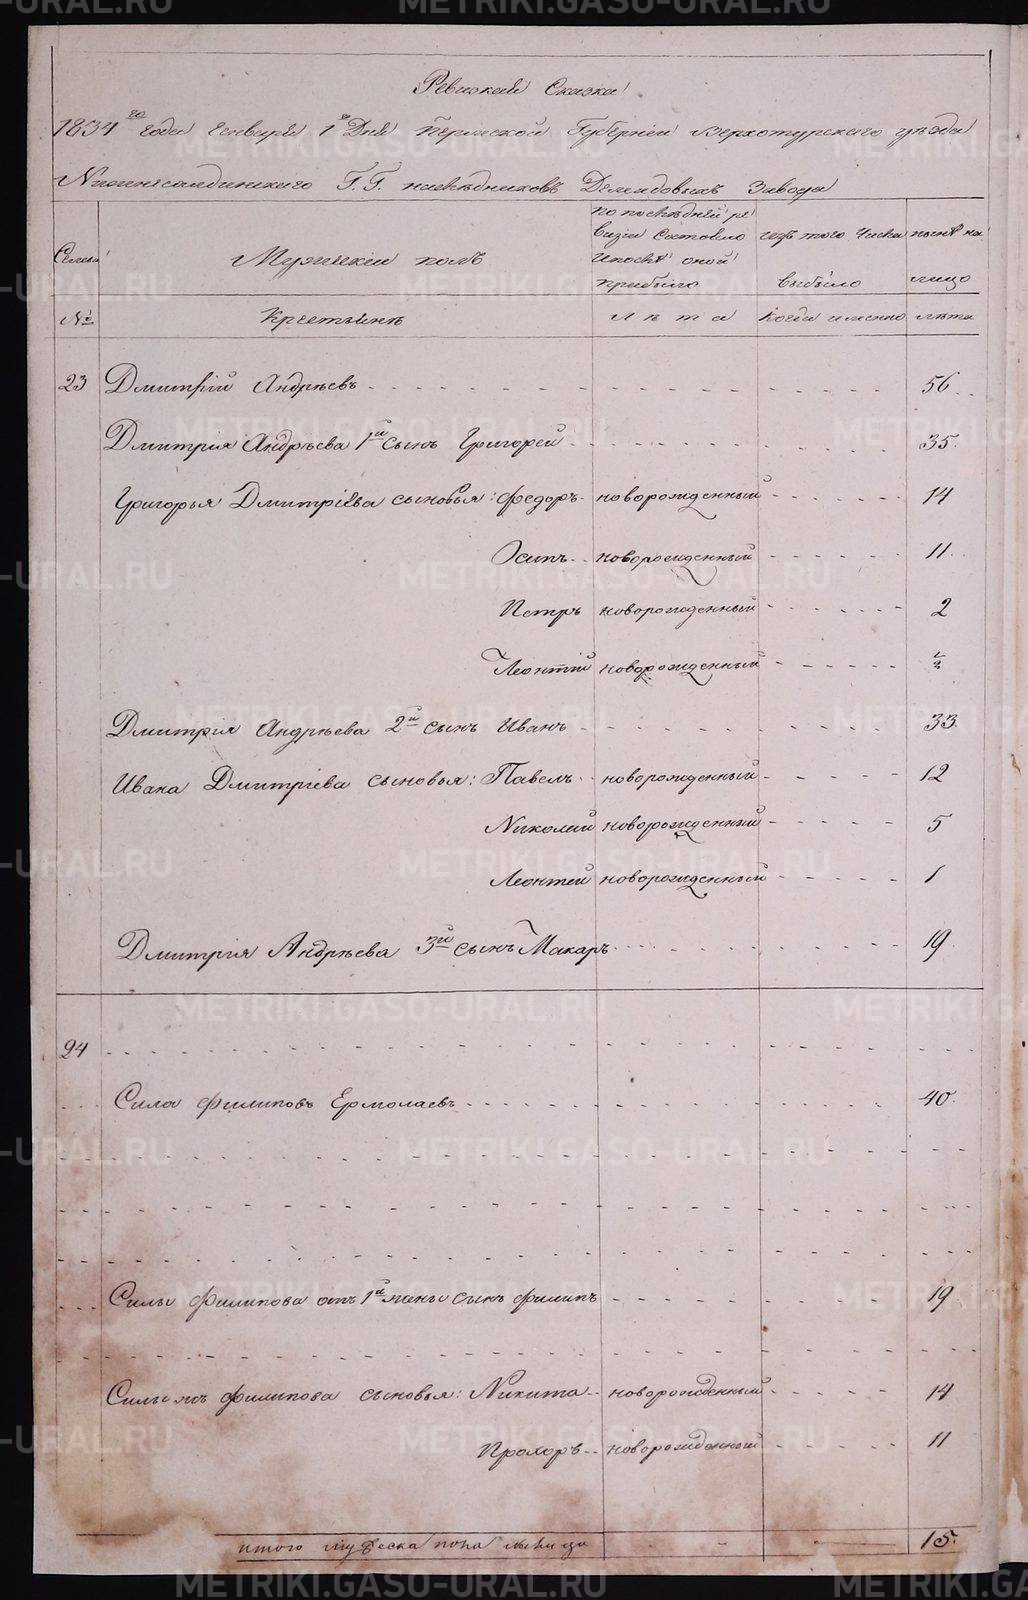 Ревизкая Сказка
1834го года Генваря 1го Дня Пермской Губернии Верхотурскаго уѣзда
Нижнесалдинскаго Г.Г. наслѣдниковъ Демидовыхъ Завода
Семьи
Мужеский полъ
по последней ре
визии Состояло
и после оной
прибыло
изъ того Числа
выбыло
ныне на
лицо
№
Крестьянъ
Лѣта
Когда именно
лѣта
23 Дмитрий Андрѣевъ 56
Дмитрия Андрѣева 1й сынъ Григорей 35
Григорья Дмитріева сыновья: Федоръ новорожденный 14
Осипъ новорожденный 11
Петръ новорожденный 2
Леонтій новорожденный ½
Дмитрия Андрѣева 2й сынъ Иванъ 33
Ивана Дмитріева сыновья: Павелъ новорожденный 12
Николай новорожденный 5
Леонтей новорожденный 1
Дмитрия Андрѣева 3й сынъ Макаръ 19
24
Сила Филиповъ Ермолаевъ 40
Силы Филипова отъ 1й жены сынъ Филипъ 19
Силы жъ Филипова сыновья: Никита новорожденный 14
Прохоръ новорожденный 11
итого мужеска пола налицо 15
METRIKI.GASO-URAL.RU